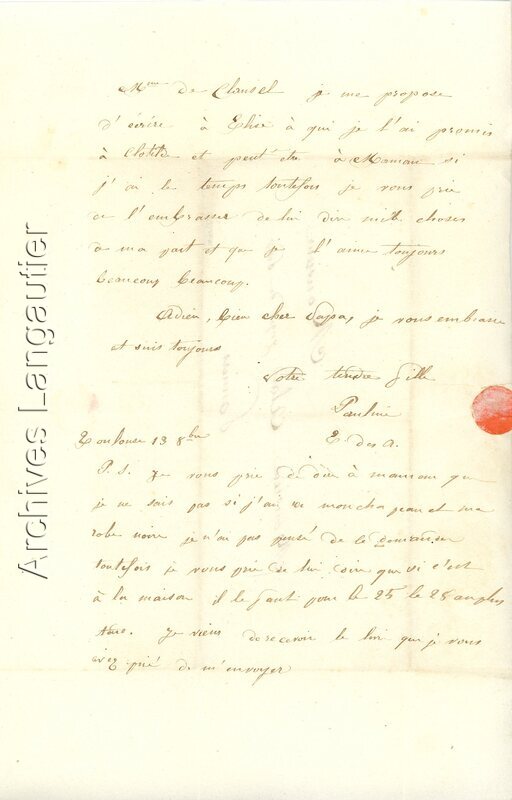 Mme de Clausel je me propose
d'écrire à Elisa à qui je l'ai promis
à Clotilde et peut être à Maman si
j'ai le temps toutefois je vous prie
de l'embrasser de lui dire mille choses
de ma part et que je l'aime toujours
beaucoup beaucoup.
Adieu, bien cher Papa, je vous embrasse
et suis toujours
Votre tendre fille
Pauline
Toulouse 13 8bre E. des A.
P. S. Je vous prie de dire à maman que
je ne sais pas si j'ai mon chapeau et ma
robe noire je n'ai pas pensé de le demander
toutefois je vous prie de lui dire que si c'est
à la maison il le faut pour le 25 le 28 au plus
tard. Je viens de recevoir le livre que je vous
avez prié de m'envoyer
Archives Langautier